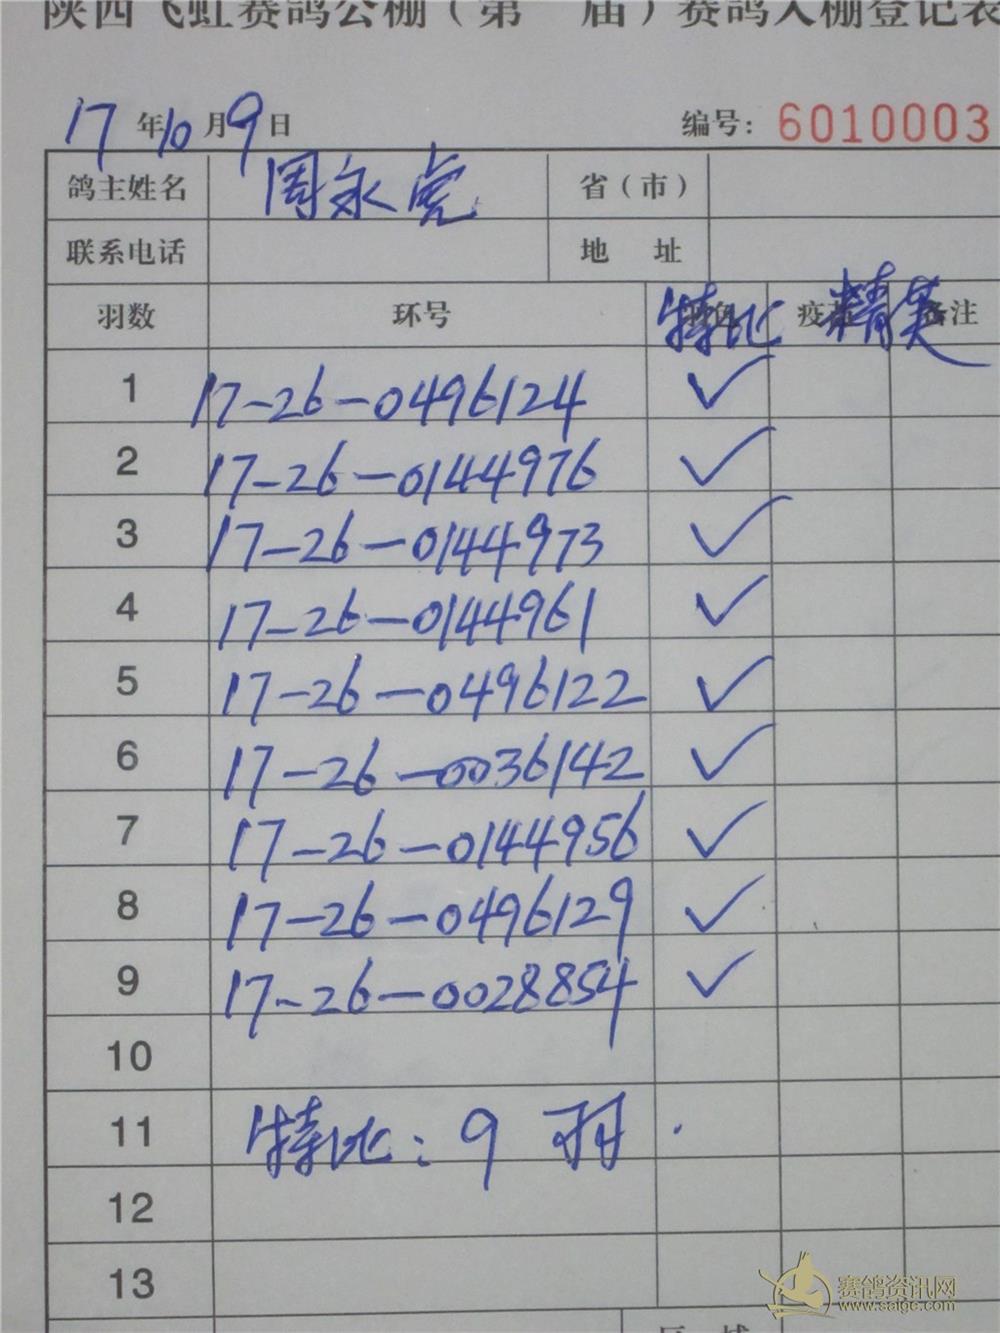 陕西飞虹赛鸽公棚（第 届）赛鸽入棚登记表
17年10月9日 编号：6010003
鸽主姓名 周永虎 省（市）
联系电话 地 址
羽数 环号 特比 精英 备注
1 17-26-0496124 ✓
2 17-26-0144976 ✓
3 17-26-0144973 ✓
4 17-26-0144961 ✓
5 17-26-0496122 ✓
6 17-26-0036142 ✓
7 17-26-0144956 ✓
8 17-26-0496129 ✓
9 17-26-0028854 ✓
10
11 特比：9 羽.
12
13
赛鸽资讯网
www.saigc.com